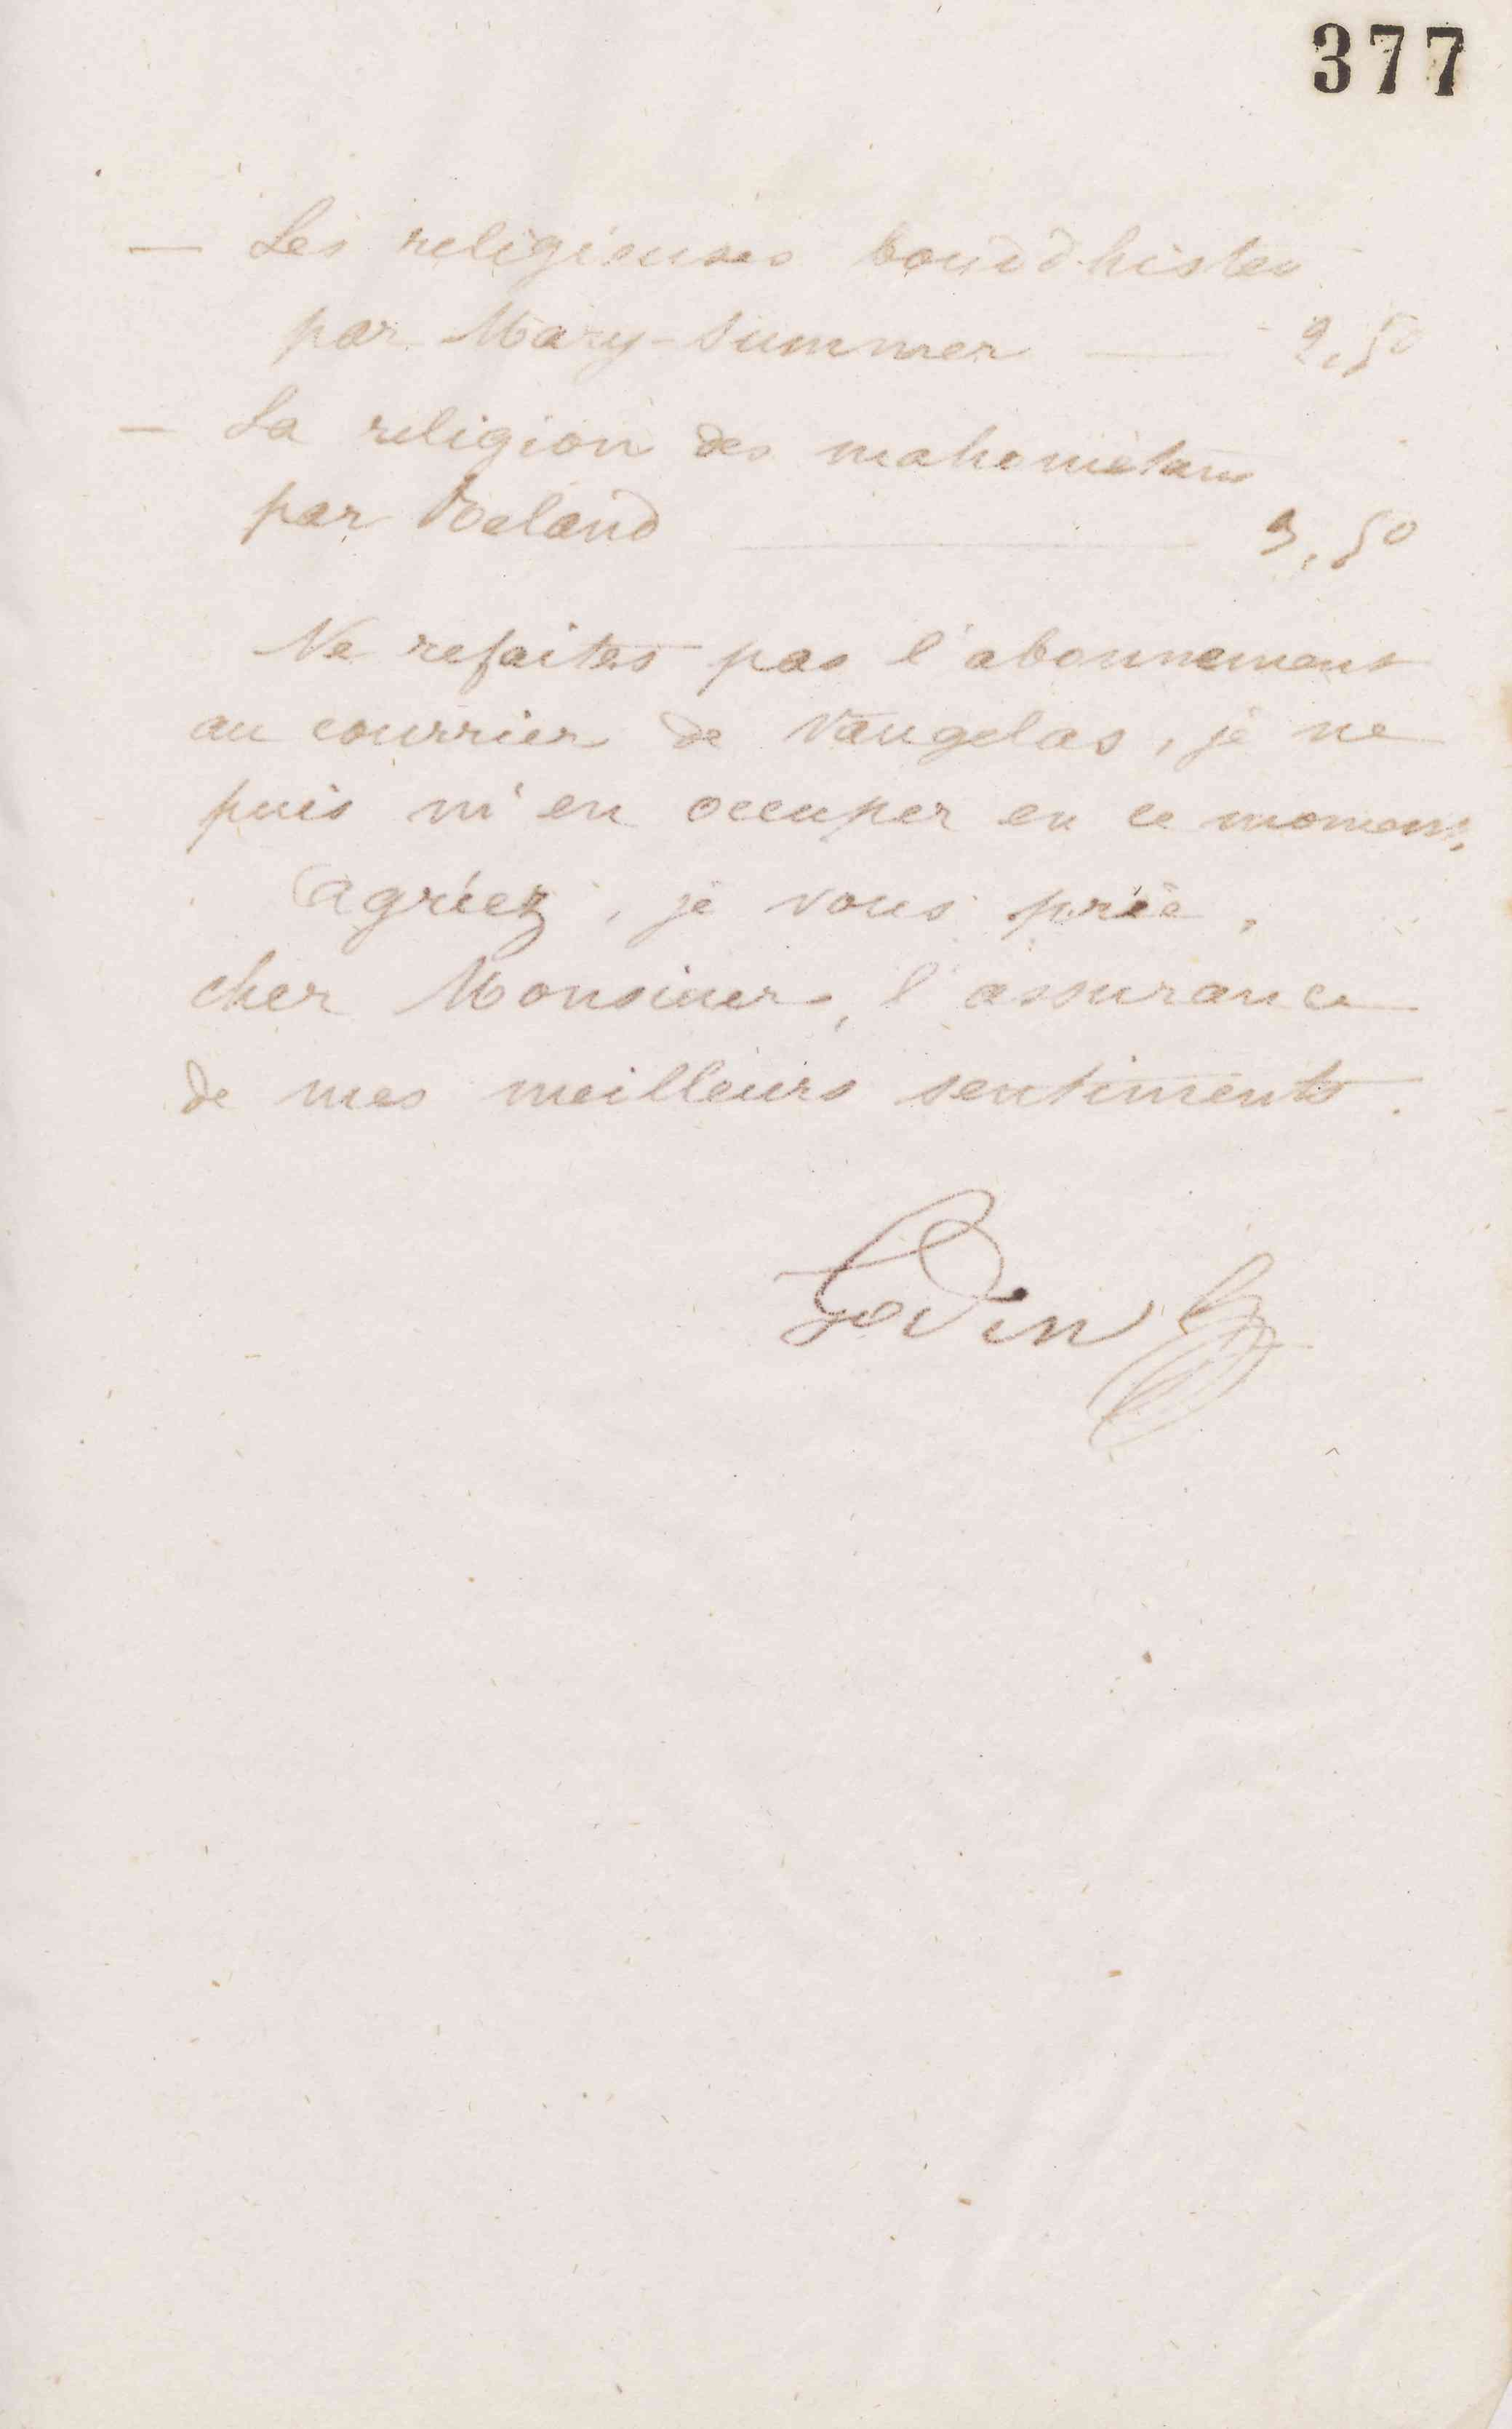 377
— Les religieuses bouddhistes
par Mary-Summer — 2,50
— La religion des mahométans
par Reland — 3,50
Ne refaites pas l'abonnement
au courrier de Vaugelas, je ne
puis m'en occuper en ce moment.
Agréez, je vous prie,
cher Monsieur, l'assurance
de mes meilleurs sentiments.
Godin